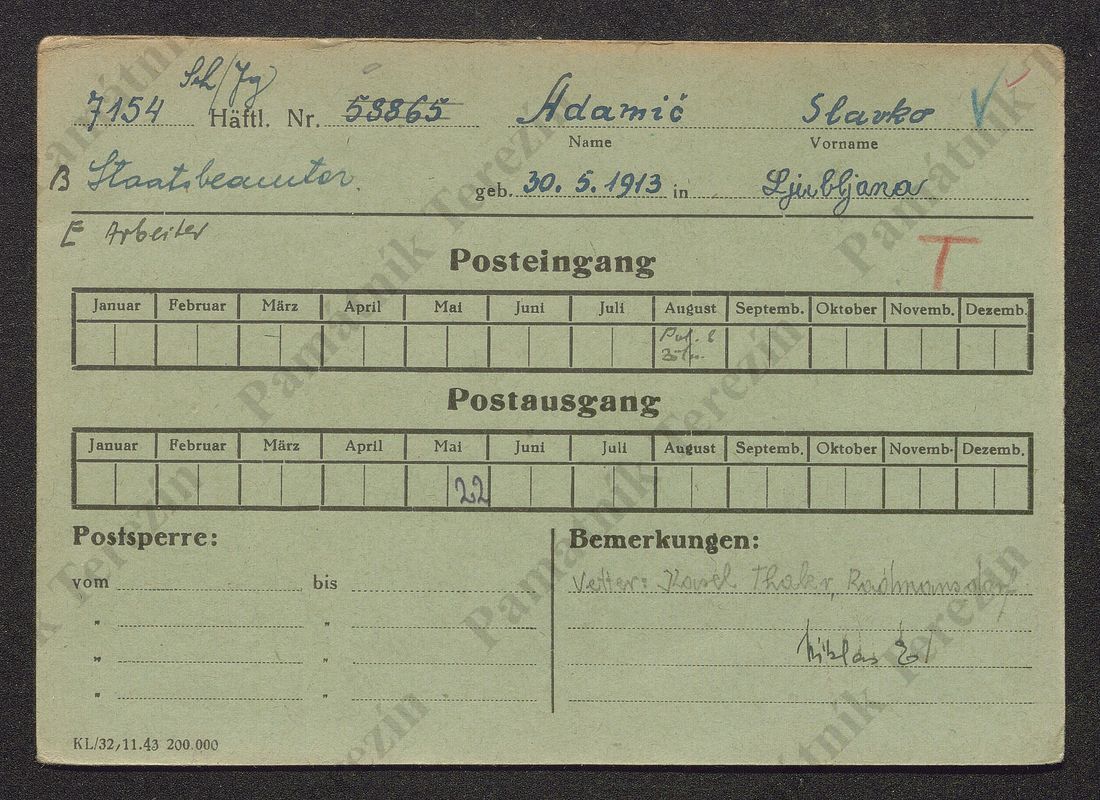 Sch/Jg
7154 Häftl. Nr. 58865 Adamič Slavko
Name Vorname
B Staatsbeamter. geb. 30. 5. 1913 in Ljubljana
E Arbeiter
T
Posteingang
Januar Februar März April Mai Juni Juli August Septemb. Oktober Novemb. Dezemb.
Postausgang
Januar Februar März April Mai Juni Juli August Septemb. Oktober Novemb. Dezemb.
22
Postsperre: Bemerkungen:
vom bis Vetter: Thaler,
" "
Niklas
" "
" "
KL/32, 11.43 200.000
Památník Terezín